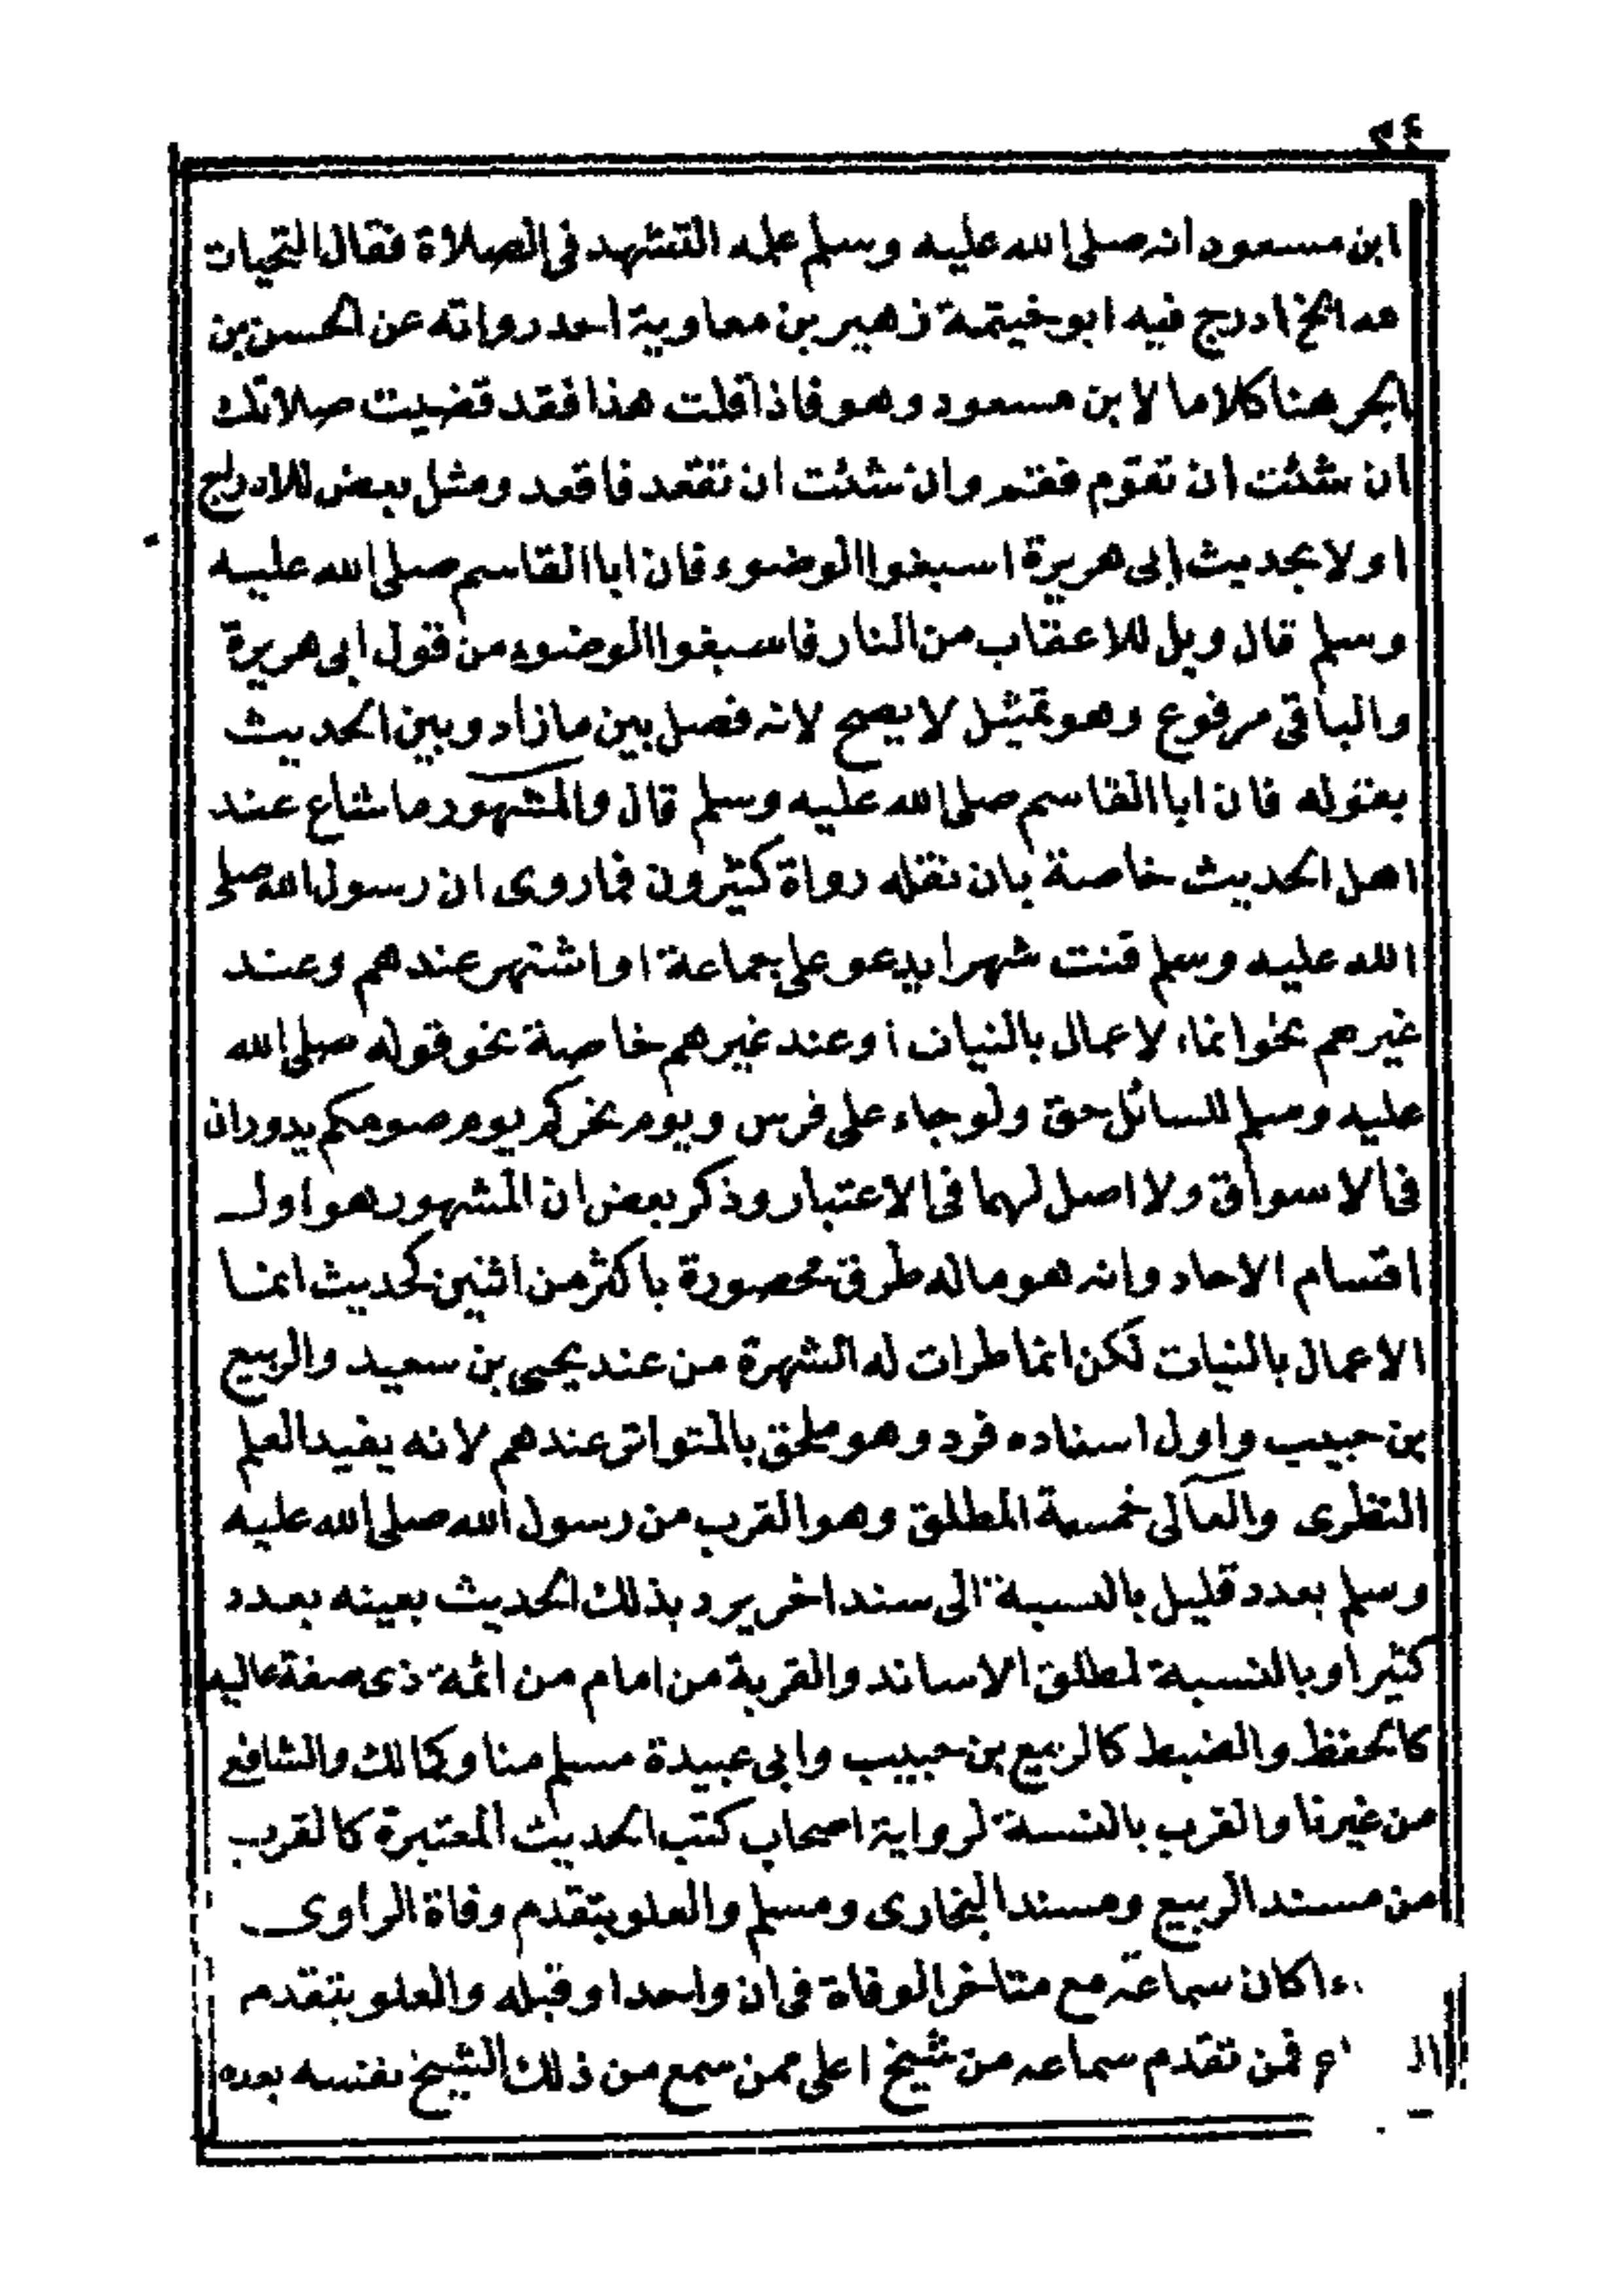 ٢٤
ابن مسعود انه صلى الله عليه وسلم علمه التشهد فى الصلاة فقال التحيات
لله الخ ادرج فيه ابو خيثمة زهير بن معاوية احد رواته عن الحسن بن
الحر هنا كلاما لابن مسعود وهو فاذا قلت هذا فقد قضيت صلاتك
ان شئت ان تقوم فقم وان شئت ان تقعد فاقعد ومثل بعض للادراج
اولا بحديث ابى هريرة اسبغوا الوضوء فان ابا القاسم صلى الله عليه
وسلم قال ويل للاعقاب من النار فاسبغوا الوضوء من قول ابى هريرة
والباقى مرفوع وهو تمثيل لا يصح لانه فصل بين ما زاد وبين الحديث
بقوله فان ابا القاسم صلى الله عليه وسلم قال والمشهور ما شاع عند
اهل الحديث خاصة بان نقله رواة كثيرون فما روى ان رسول الله صلى
الله عليه وسلم قنت شهرا يدعو على جماعة او اشتهر عندهم وعند
غيرهم نحو انما الاعمال بالنيات او عند غيرهم خاصة نحو قوله صلى الله
عليه وسلم للسائل حق ولو جاء على فرس ويوم نحركم يوم صومكم يدوران
فى الاسواق ولا اصل لهما فى الاعتبار وذكر بعض ان المشهور هو اول
اقسام الاحاد وانه هو ماله طرق محصورة باكثر من اثنين كحديث انما
الاعمال بالنيات لكن انما طرات له الشهرة من عند يحيى بن سعيد والربيع
بن حبيب واول اسناده فرد وهو ملحق بالمتواتر عندهم لانه يفيد العلم
النظرى والعالى خمسة المطلق وهو القرب من رسول الله صلى الله عليه
وسلم بعدد قليل بالنسبة الى سند اخر يرد بذلك الحديث بعينه بعدد
كثير او بالنسبة لمطلق الاساند والقربة من امام من ائمة ذى صفة عاليه
كالحفظ والضبط كالربيع بن حبيب وابى عبيدة مسلم منا وكمالك والشافع
من غيرنا والقرب بالنسبة لرواية اصحاب كتب الحديث المعتبرة كالقرب
من مسند الربيع ومسند البخارى ومسلم والعلو بتقدم وفاة الراوى
كان سماعه مع متاخر الوفاة فى ان واحد او قبله والعلو بتقدم
فمن تقدم سماعه من شيخ اعلى ممن سمع من ذلك الشيخ نفسه بعده